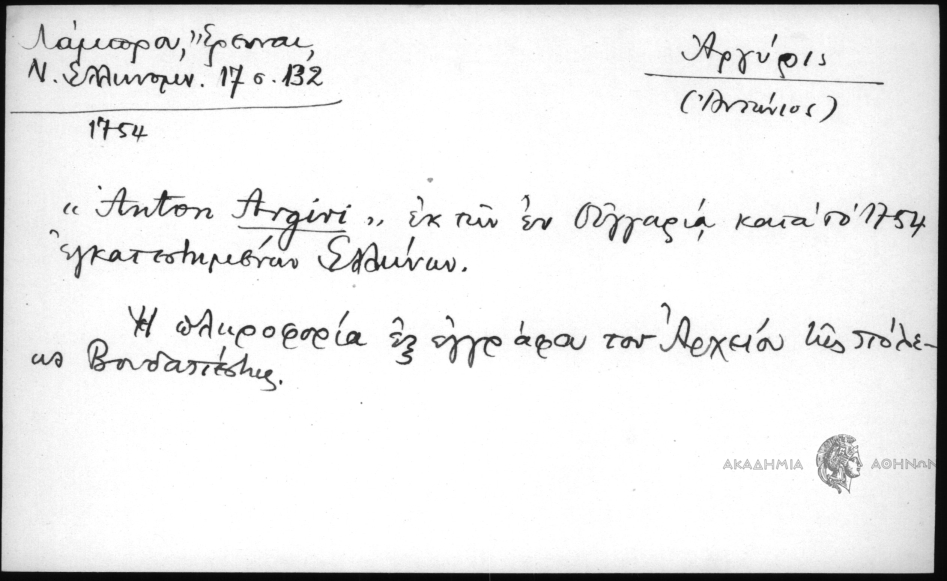 Λάμπρου, "Έρευναι,
Ν. Ἑλληνομν. 17 σ. 132
1754
Ἀργύρις
(Ἀντώνιος)
"Anton Argiri" ἐκ τῶν ἐν Οὑγγαρίᾳ κατὰ τὸ 1754
ἐγκατεστημένων Ἑλλήνων.
Ἡ πληροφορία ἐξ ἐγγράφου τοῦ Ἀρχείου τῆς πόλε-
ως Βουδαπέστης.
ΑΚΑΔΗΜΙΑ ΑΘΗΝΩΝ